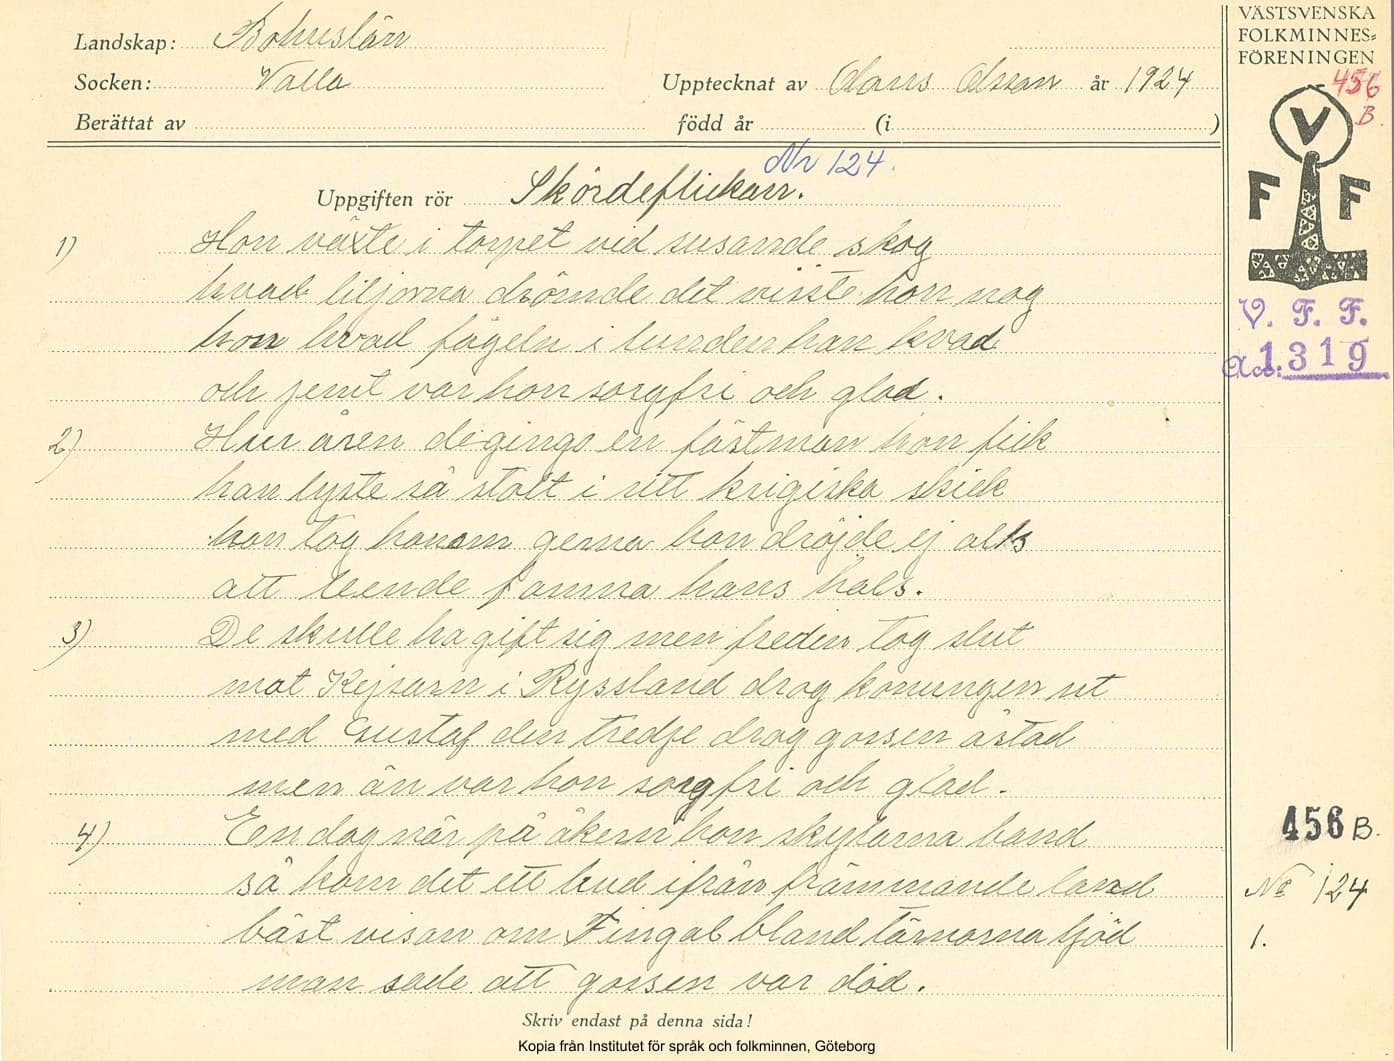 Landskap: Bohuslän
Socken: Valla
Upptecknat av Olaus Olsson år 1924
Berättat av
född år (i )
Nr 124.
Uppgiften rör Skördeflickan.
1) Hon växte i torpet vid susande skog
hvad liljorna drömde det visste hon nog
hon hvad fågeln i lunden han kvad
och jemt var hon sorgfri och glad.
2) Hur åren de gingo en fästman hon fick
han lyste så stolt i sitt krigiska skick
hon tog honom gerna hon dröjde ej alls
att leende famna hans hals.
3) De skulle ha gift sig men freden tog slut
mot Kejsarn i Ryssland drog konungen ut
med Gustaf den tredje drog gossen åstad
men än var hon sorgfri och glad.
4) En dag när på åkern hon skylarna band
så kom det ett bud ifrån främmande land
bäst visan om Fingal bland tärnorna ljöd
man sade att gossen var död.
Skriv endast på denna sida!
Kopia från Institutet för språk och folkminnen, Göteborg
VÄSTSVENSKA
FOLKMINNES=
FÖRENINGEN
456
B.
V
F F
V. F. F.
Acc: 1319
456 B.
No 124
1.